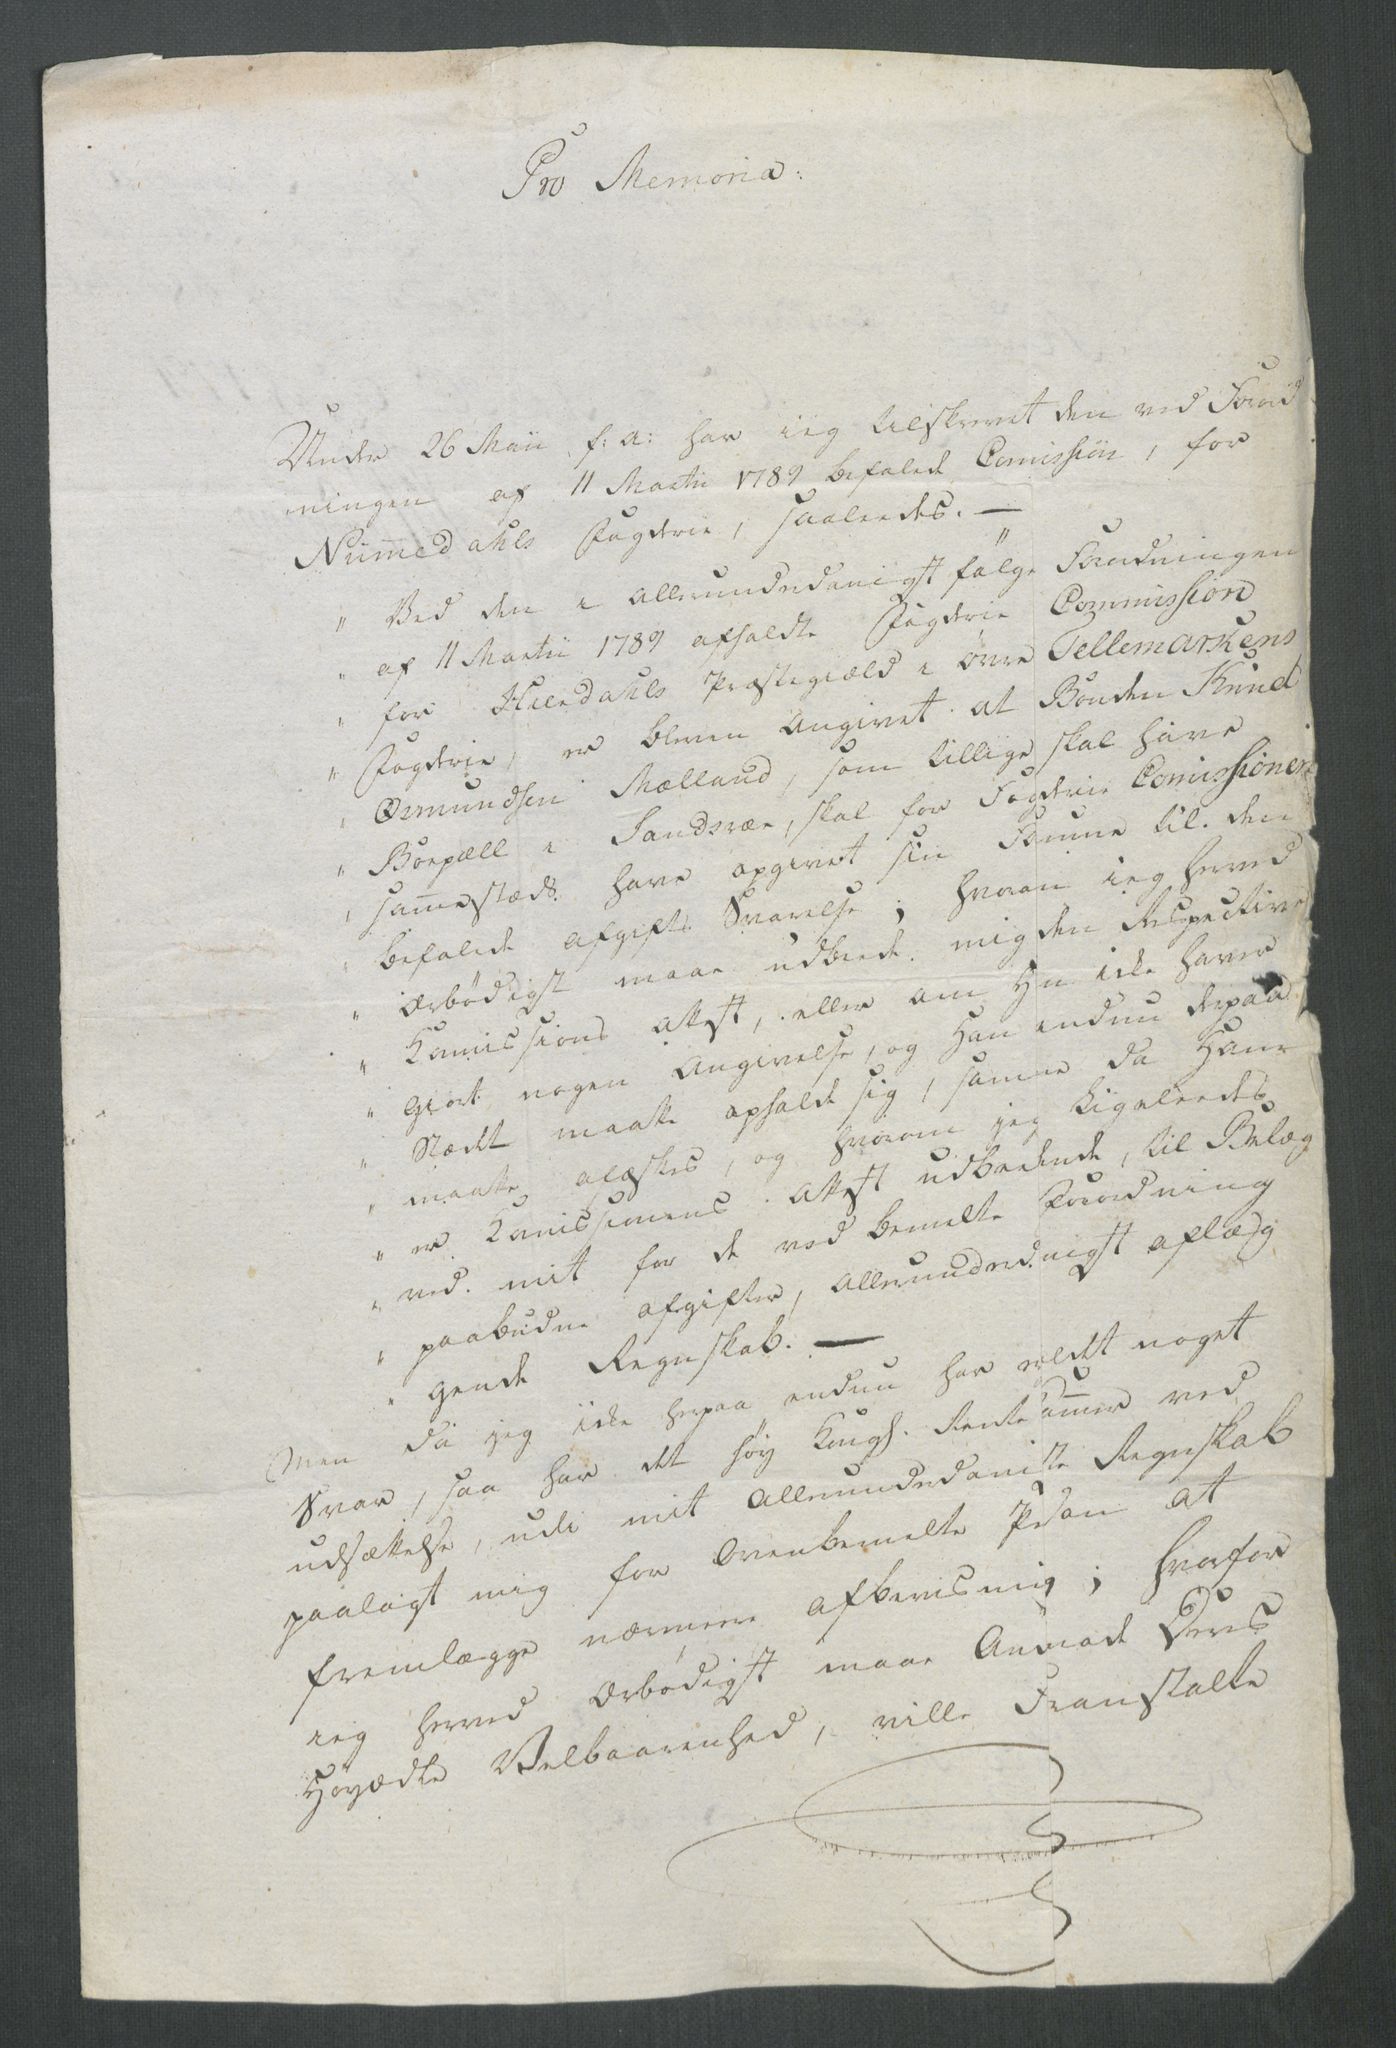 Pro Memoria:
Under 26 Maii f: a: har ieg tilskrevet den ved Forord
ningen af 11 Martii 1789 befalede Comission, for
Nummedahls Fogderie, saaledes. —
" Ved den i allerunderdanigst følge Forordningen
" af 11 Martii 1789 afholdte Fogderie Commission
" for Hierdahls Præstegiæld i Øvre Tellemarkens
" Fogderie, er bleven Angivet at Bonden Knud
" Ormundsen Mælland, som tillige skal have
" Boepæll i Sandsvær, skal for Fogderie Comissionen
" sammestæds have opgivet sin Formue til den
" befalede afgifts Svarelse; hvorom ieg herved
" ærbødigst maae udbede mig den Respective
" Komissions attest, eller om Hn ikke haver
" giort nogen Angivelse, og Han endnu derpaa
" Stædt maatte opholde sig, samme da Ham
" maatte , og hvorom jeg ligeleedes
" er Komissionens attest udbedende, til Belæg
" ved mit for de ved bemelte Forordning
" paabudne afgifter, allerunderdanigst aflæg
" gende Regnskab. —
Men da jeg ikke herpaa endnu har erholdt noget
Svar, saa har det høy Kongl. Rentekammer ved
udsættelse, udi mit Allerunderdanigste Regnskab
paalagt mig for Ovenbemelte Person at
fremlægge nærmere afbeviisning; hvorfor
ieg herved Ærbødigst maae Anmode Deres
Høyædle Velbaarenhed, ville Foranstalte